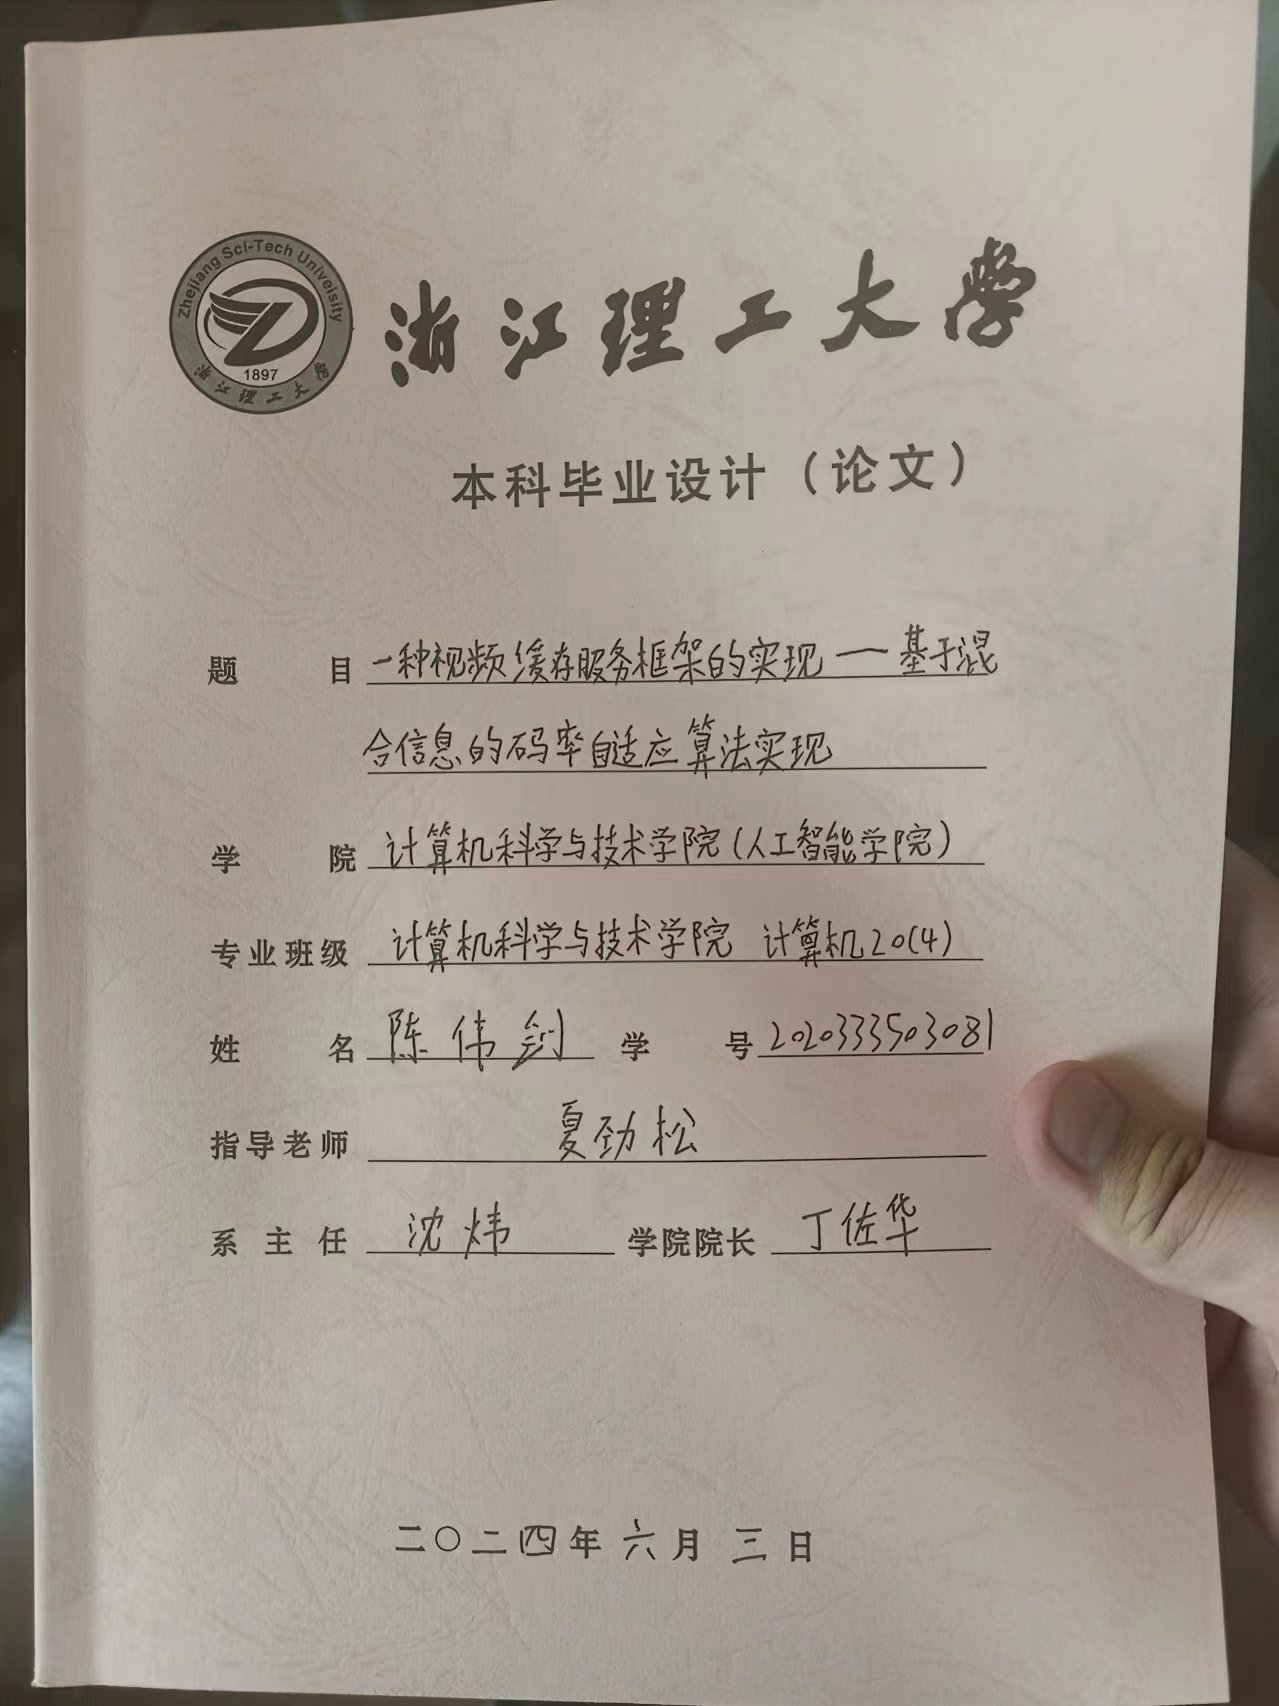 Zhejiang Sci-Tech University
1897
浙江理工大学
浙江理工大学
本科毕业设计（论文）
题 目 一种视频缓存服务框架的实现一基于混
合信息的码率自适应算法实现
学 院 计算机科学与技术学院(人工智能学院)
专业班级 计算机科学与技术学院 计算机20(4)
姓 名 陈伟剑 学 号 2020333503081
指导老师 夏劲松
系主任 沈炜 学院院长 丁佐华
二〇二四年六月三日